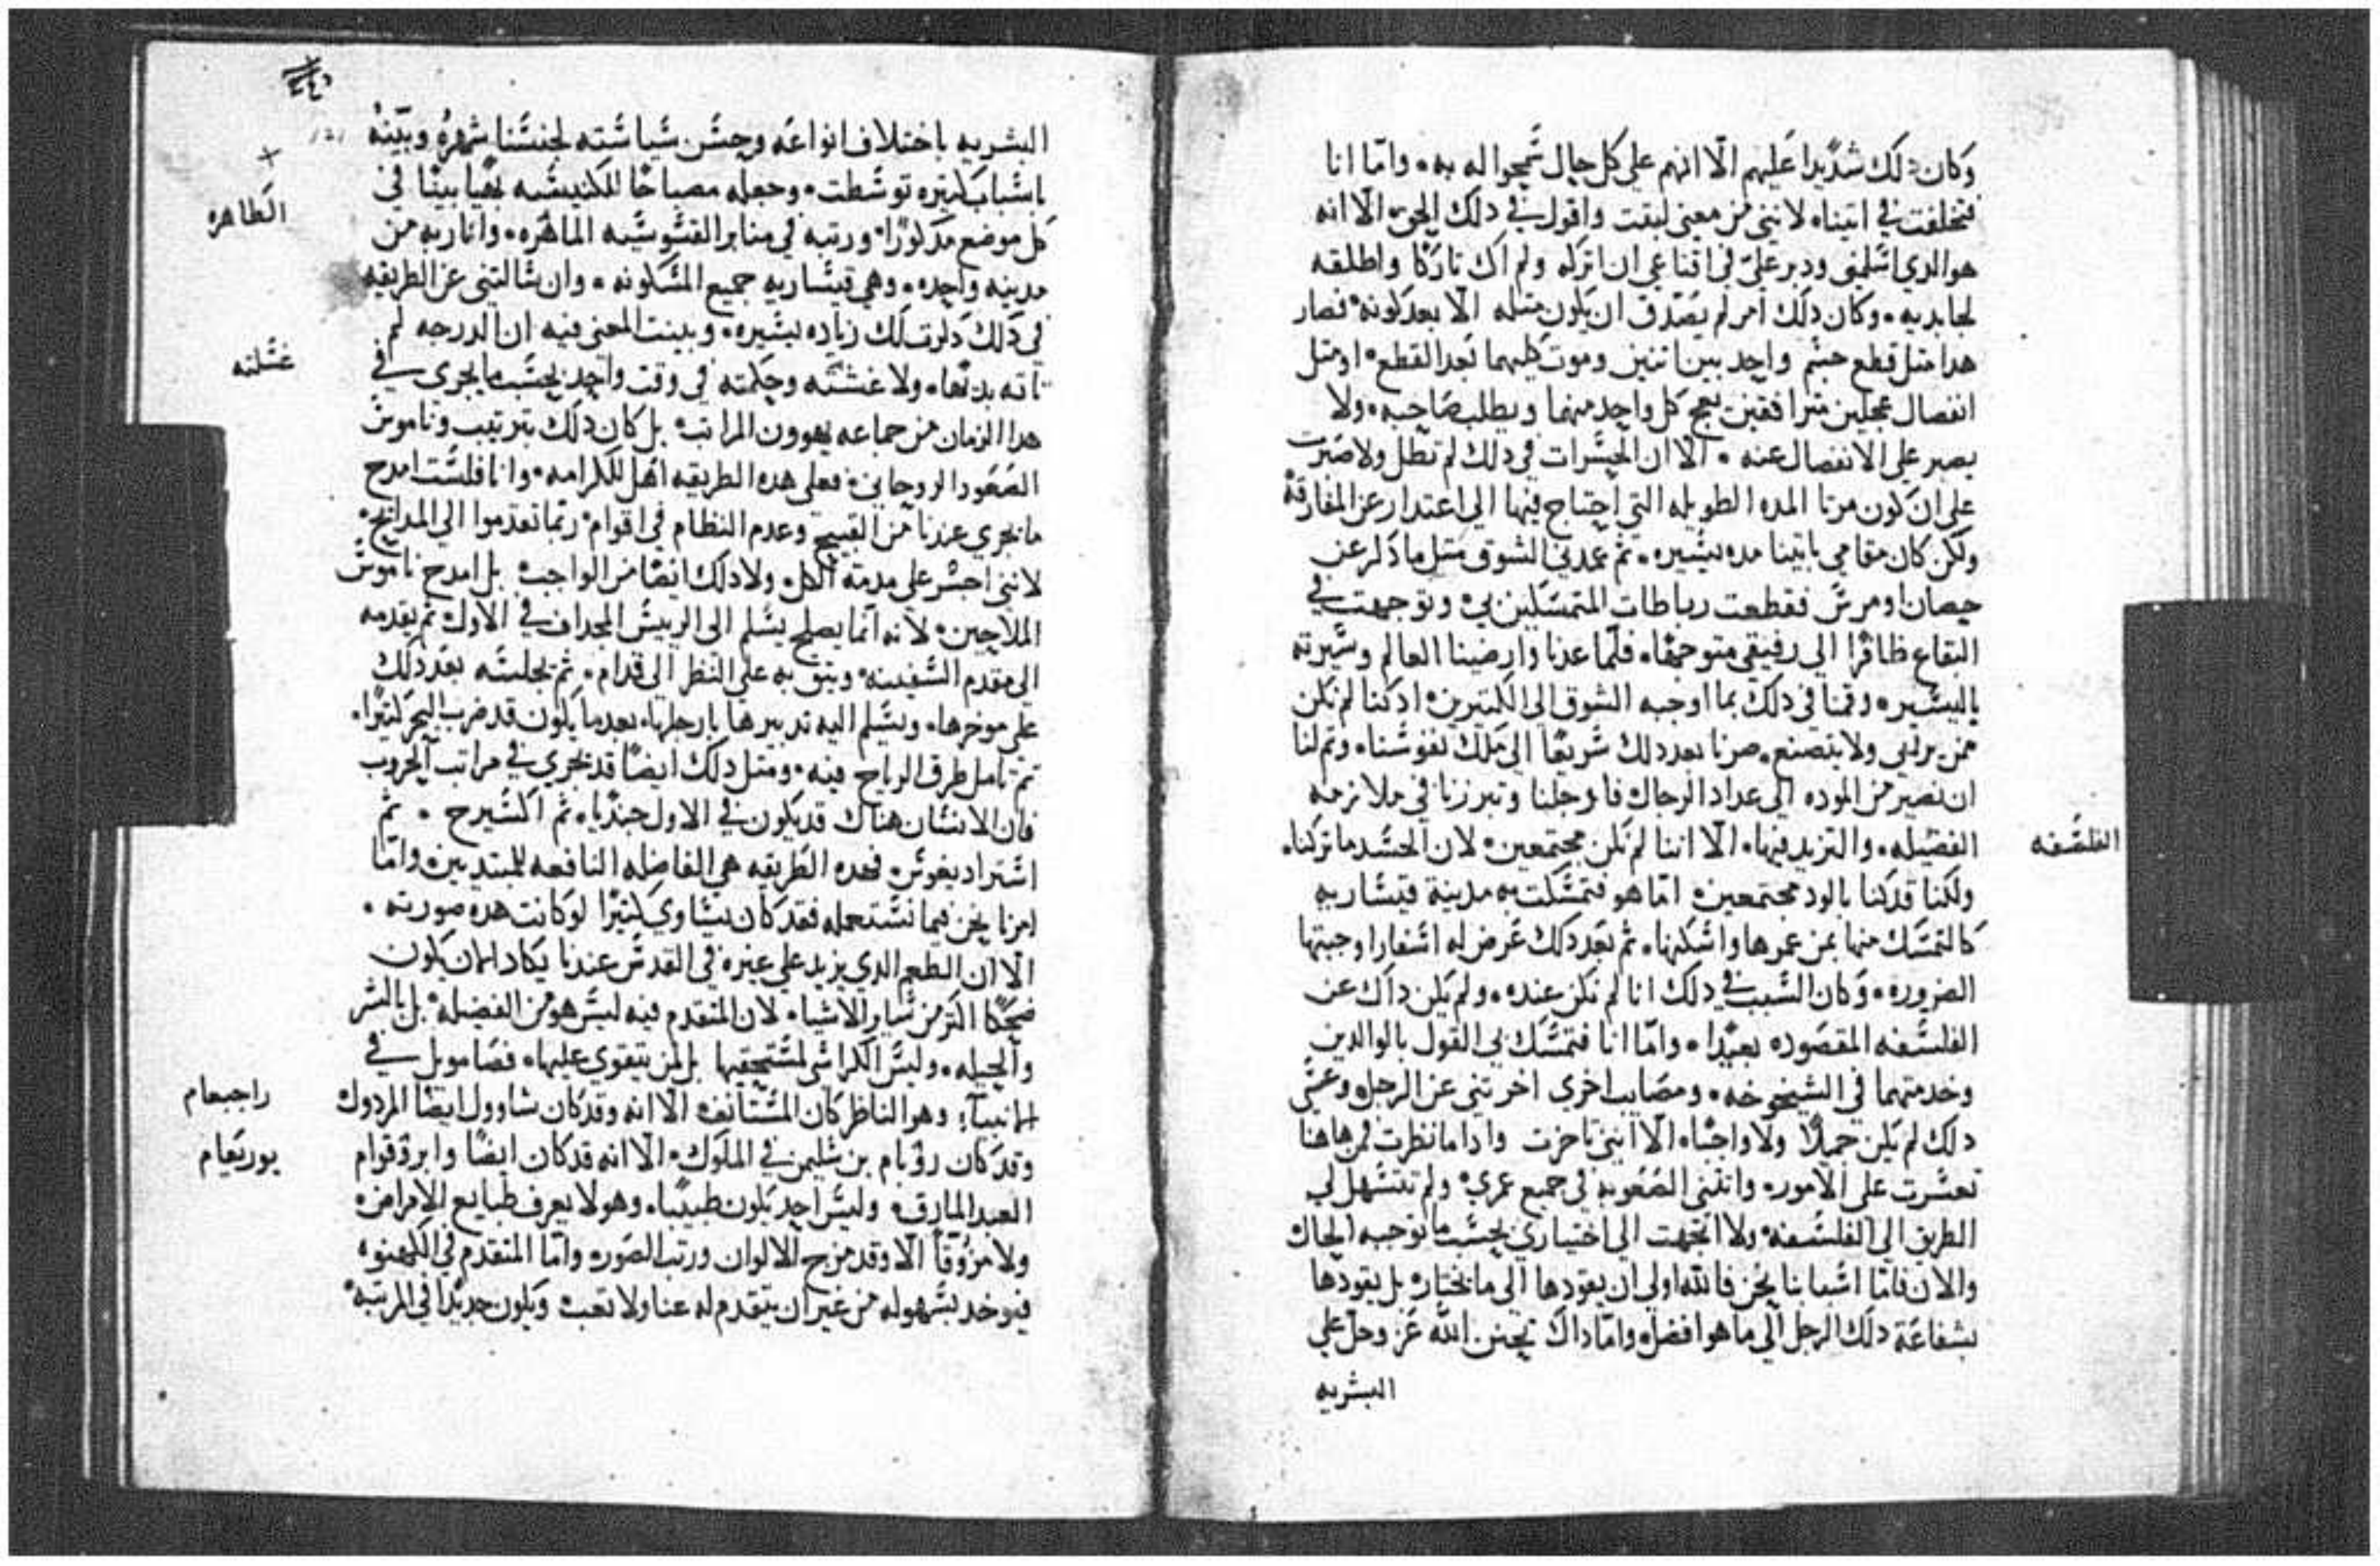 وكان ذلك شديدا عليهم الّا انهم على كل حال سمحوا له به، وامّا انا
فتخلفت في اتيناه لانني من معنى لبقت واقول في ذلك الحق الّا انه
هو الذي اسلمني ودبر عليّ في اقناعي ان اتركه ولم اك تاركا واطلقه
لجابديه، وكان ذلك امر لم يصدق ان يكون مثله الّا بعد كونه، فصار
هذا مثل قطع جسم واحد بين اثنين وموت كليهما بعد القطع، او مثل
انفصال عجلين مترافقين يعج كل واحد منهما ويطلب صاحبه، ولا
يصبر على الانفصال عنه، الّا ان الخسرات في ذلك لم تطل ولا صبرت
على ان كون مرتا المده الطويله التي احتاج فيها الى اعتدار عن المفارقة
ولكن كان مقامي باتينا مده يسيره، ثم عمدني الشوق مثل ما ذكر عن
حصان اوميرس فقطعت رباطات المتمسكين بي وتوجهت في
البقاع ظافرا الى رفيقي متوجها، فلمّا عدنا وارضينا العالم وسيرته
باليسير، وقمنا في ذلك بما اوجبه الشوق الى الكتيرين، اذ كنا لم نكن
ممن يرايي ولا يتصنع، صرنا بعد ذلك سريعا الى ملك نفوسنا، وتم لنا
ان نصير من الموده الى عداد الرجال فارجلنا وتبرزنا في ملازمه
الفضيله، والتزيد فيها، الّا اننا لم نكن مجتمعين، لان الحسد ما تركنا،
الفلسفه
ولكنا قد كنا بالود مجتمعين، امّا هو فتمسكت به مدينة قيساريه
كالتمسك منها بمن عمرها واسكنها، ثم بعد ذلك عرض له اسفارا وجبتها
الضروره، وكان السبب في ذلك انا لم نكن عنده، ولم يكن ذاك عن
الفلسفه المقصوده بعيدا، وامّا انا فتمسك بي القول بالوالدين
وخدمتهما في الشيخوخه، ومصايب اخرى اخرتني عن الرجل وعسى
ذلك لم يكن جميلا ولا واجبا، الّا انني تاخرت واذا ما نظرت فمن هاهنا
تعسرت على الامور، واتتني الصعوبه في جميع عمري، ولم تتسهل لي
الطريق الى الفلسفه، ولا اتجهت الى اختياري بحسب ما توجبه الحال
والان فامّا اسبابنا نحن فالله اولى ان يقودها الى ما نختار، بل يقودها
بشفاعة ذلك الرجل الى ما هو افضل، وامّا ذاك تحنن الله عز وجل على
البشريه
البشريه باختلاف انواعه وحسن سياسته لجنسنا شهره وبيّنه
باسباب كتيره توسطت، وجعله مصباحا للكنيسه بهيا بيّنا في
الطاهره
كل موضع مذكورا، ورتبه في منابر القسوسيه الماهره، وانار به من
مدينه واحده، وهي قيساريه جميع المسكونه، وان سالتني عن الطريقه
في ذلك ذكرت لك زياده يسيره، وبينت المعنى فيه ان الدرجه لم
غسلته
تاته بدتها، ولا غسّله وحكمته في وقت واحد بحسب ما يجري في
هذا الزمان من جماعه يهوون المراتب، بل كان ذلك بترتيب وناموس
الصعود الروحاني، فعلى هذه الطريقه اهل للكرامه، وانا فلست امدح
ما يجري عندنا من القبيح وعدم النظام في اقوام ربما تقدموا الى المدابح،
لانني احسر على مدمته الكل، ولا ذلك ايضا من الواجب، بل امدح ناموس
الملاحين، لانه انما يصلح يسلم الى الرييس المجداف في الاول ثم يقدمه
الى مقدم السفينه، ويتق به على النظر الى قدام، ثم يجلسه بعد ذلك
على موخرها، ويسلم اليه تدبيرها بارجلها، بعد ما يكون قد ضرب البحر كتيرا،
ثم تامل طرق الرياح فيه، ومتل ذلك ايضا قد يجري في مراتب الحروب
فان الانسان هناك قد يكون في الاول جنديا، ثم اكسيرح، ثم
استراديغوس، فهذه الطريقه هي الفاضله النافعه للمبتديين، وامّا
امرنا نحن فيما نستعمله فقد كان يساوي كتيرا لو كانت هذه صورته،
الّا ان الطعم الذي يزيد على غيره في القدس عندنا يكاد ان يكون
ضحكا اكتر من ساير الاشياء، لان المتقدم فيه ليس هو من الفضيله، بل بالشر
والحيله، وليس الكراسي لمستحقيها بل لمن يتقوى عليها، فصامويل في
راجبعام
الانبياء، وهو الناظر كان المستانف، الّا انه وقد كان شاوول ايضا المردول
يوربعام
وقد كان رؤبام بن سليمن في الملوك، الّا انه قد كان ايضا وابروقوام
العبد المارق، وليس احد يكون طبيبا، وهو لا يعرف طبايع الامراض،
ولا مزوقا الّا وقد مزج الالوان ورتب الصور، وامّا المتقدم في الكهنوه
فيوخد بسهوله من غير ان يتقدم له عنا ولا تعب، ويكون جديدا في المرتبه،